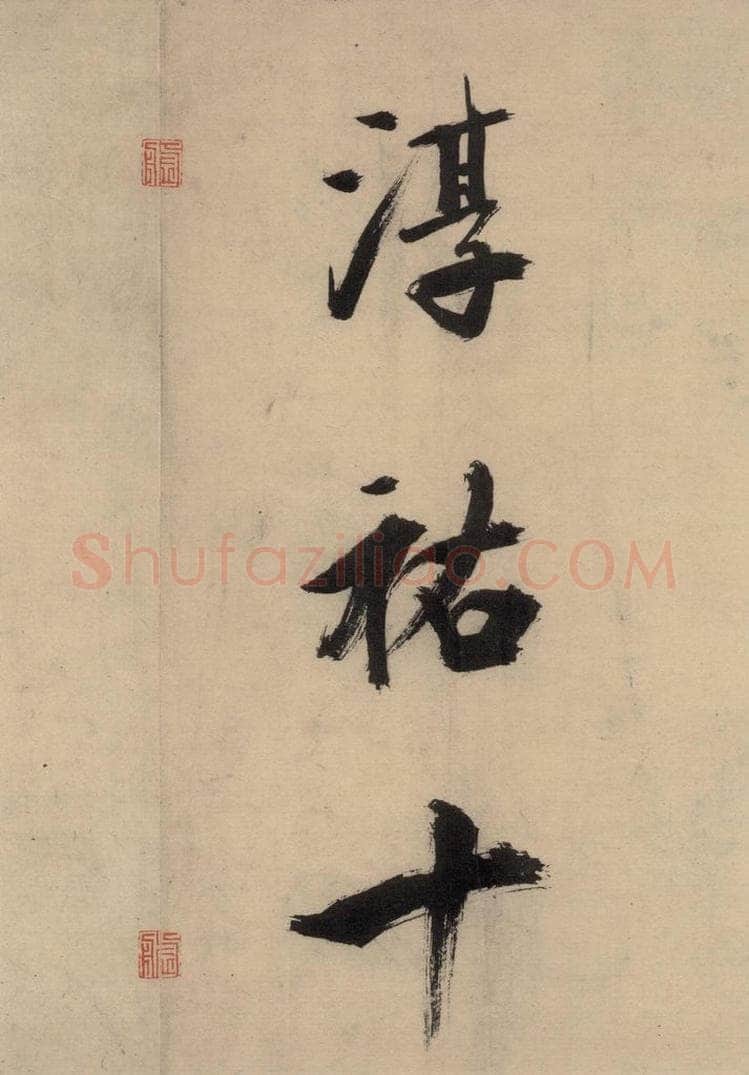 淳祐十
Shufaziliao.COM